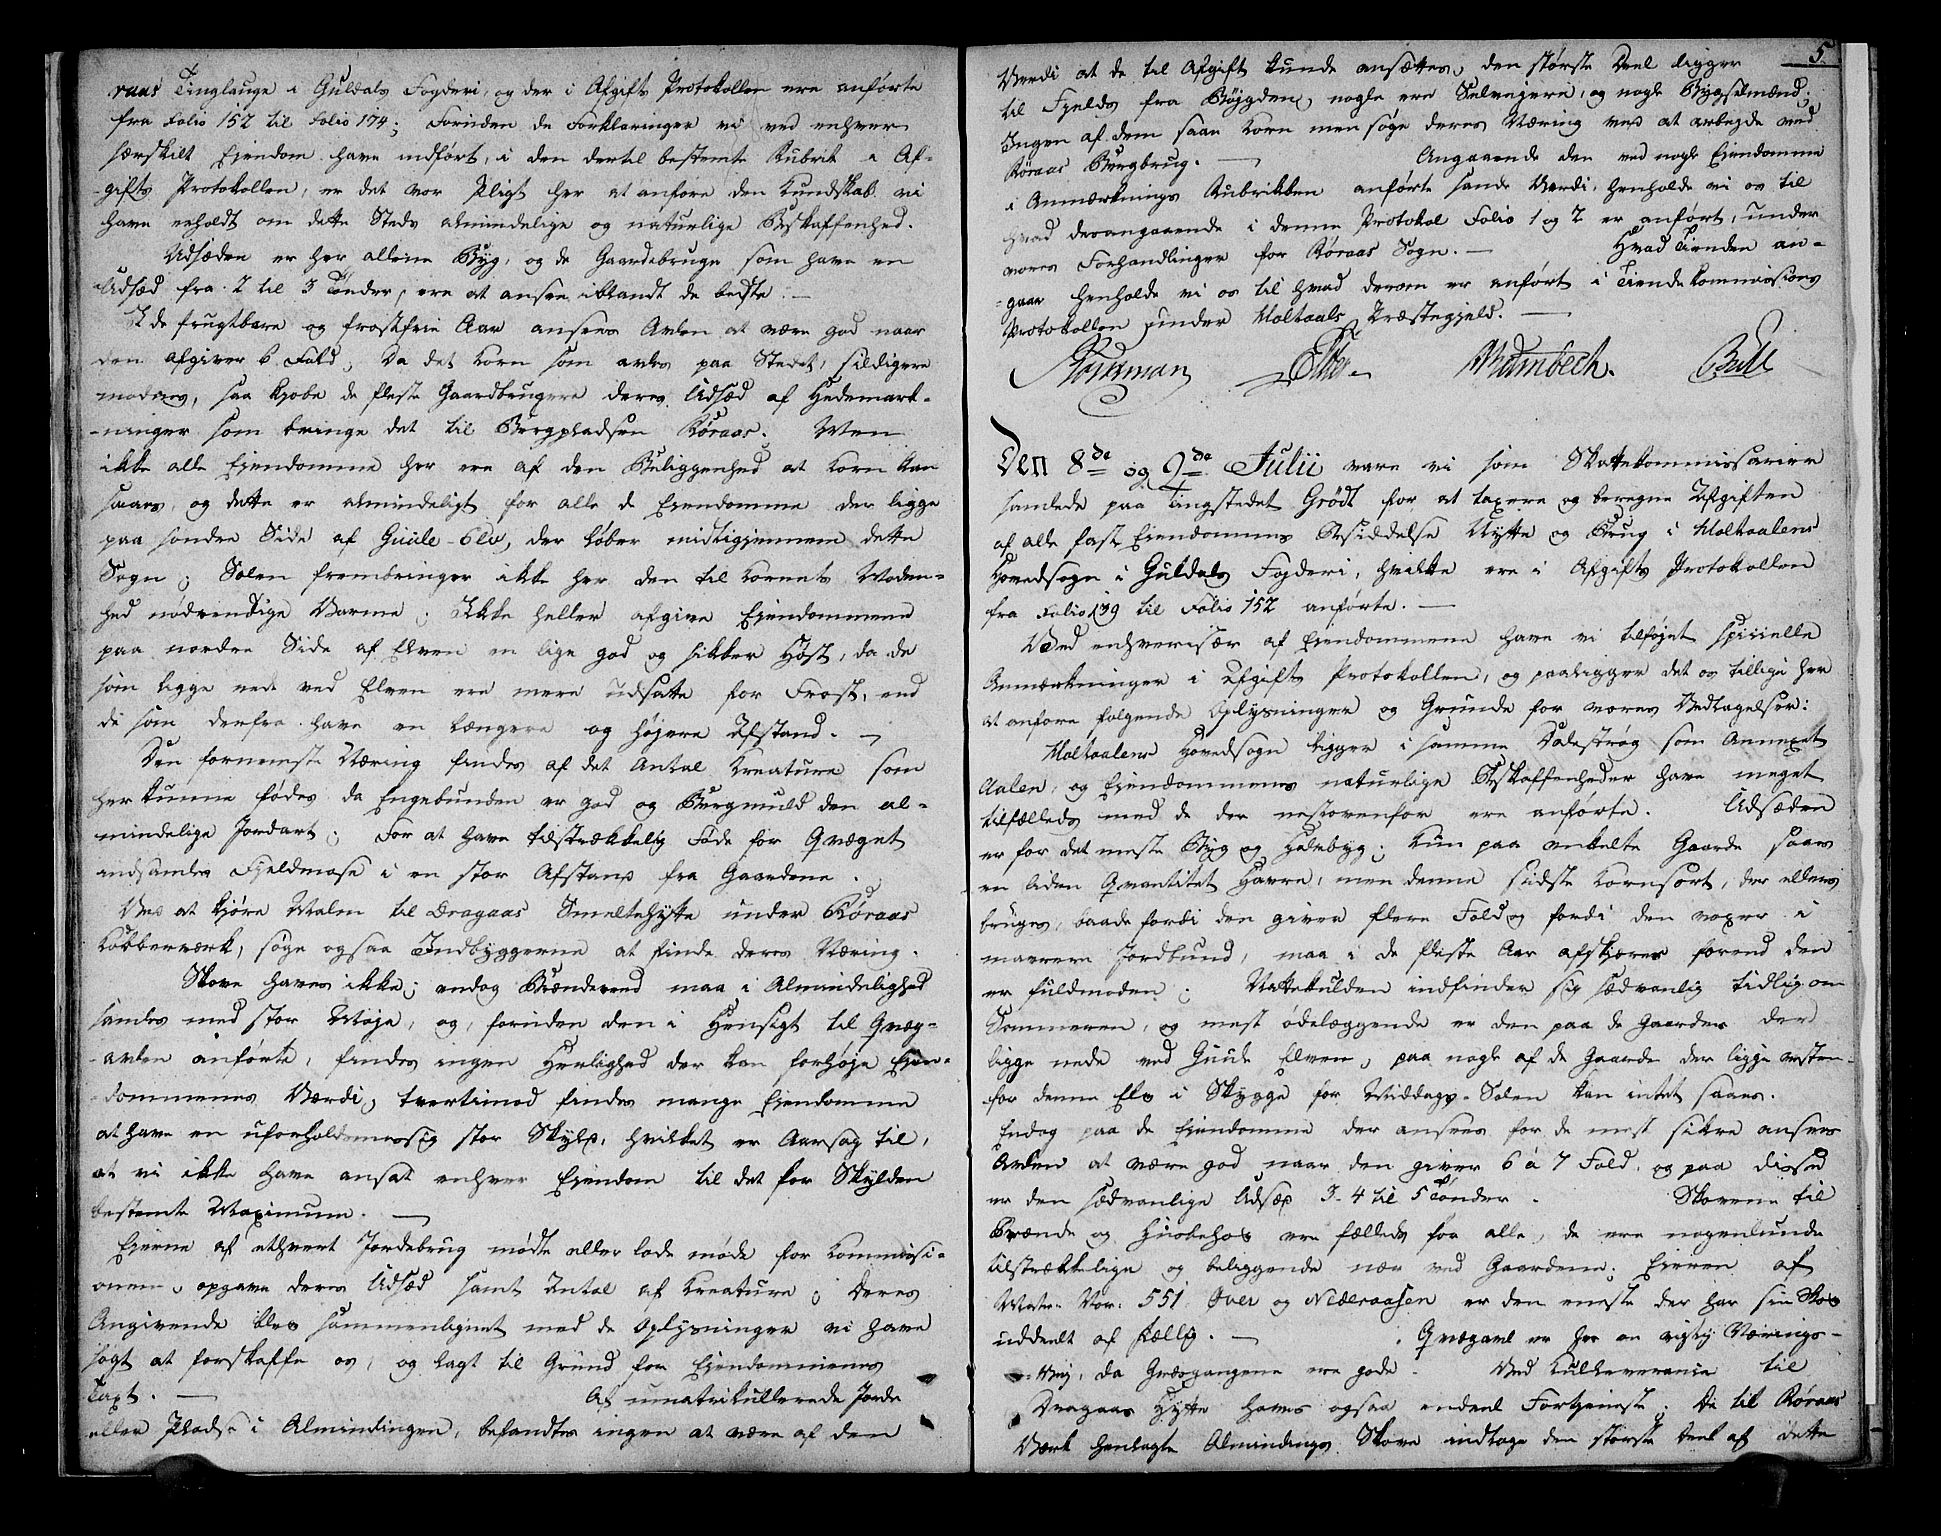 raas Tinglauge i Guldals Fogderi, og der i Afgifts Protokollen ere anførte
fra Folio 152 til Folio 174; Foruden de Forklaringer vi ved enhver
særskilt Eiendom have indført, i den dertil bestemte Rubrik i Af-
-gifts Protokollen, er det vor Pligt her at anføre den Kundskab vi
have erholdt om dette Steds almindelige og naturlige Beskaffenhed.
Udsæden er her allene Byg, og de Gaardebruge som have en
Udsæd fra 2 til 3 Tønder, ere at ansee iblandt de bedste. —
I de frugtbare og frostfrie Aar ansees Avlen at være god naar
den afgiver 6 Fold; Da det Korn som avles paa Stedet, sildigere
modnes, saa kjøbe de fleste Gaardbrugere deres Udsæd af Hedemark-
-ninger som bringe det til Bergpladsen Røraas. Men
ikke alle Eiendomme her ere af den Beliggenhed at Korn kan
saaes, og dette er almindeligt for alle de Eiendomme der ligge
paa søndre Side af Guule-Elv, der løber midtigjennem dette
Sogn; Solen frembringer ikke her den til Kornets Moden-
hed nødvendige Varme; Ikke heller afgive Eiendommene
paa nordre Side af Elven en lige god og sikker Høst, da de
som ligge nede ved Elven ere mere udsatte for Frost, end
de som derfra have en længere og højere Afstand. —
Den fornemste Næring findes af det Antal Kreature som
her kunne fødes da Engebunden er god og Bergmuld den al-
mindelige Jordart; For at have tilstrækkelig Føde for Qvæget
indsamles Fjeldmose i en stor Afstand fra Gaardene.
Ved at kjøre Malm til Dragaas Smeltehytte under Røraas
Kobberværk, søge ogsaa Indbyggerne at finde deres Næring.
Skove haves ikke; endog Brændeved maa i Almindelighed
samles med stor Møje, og, foruden den i Hensigt til Qvæg-
-avlen anførte, findes ingen Herlighed der kan forhøje Eien-
-dommenes Værdi; tvertimod findes mange Eiendomme
at have en uforholdsmessig stor Skyld, hvilket er Aarsag til,
at vi ikke have ansat enhver Eiendom til det for Skylden
bestemte Maximum. —
Eierne af ethvert Jordebrug mødte eller lode møde for Kommissi-
onen, opgave deres Udsæd samt Antal af Kreature; Deres
Angivende blev sammenlignet med de Oplysninger vi have
søgt at forskaffe os, og lagt til Grund for Eiendommenes
Taxt. — At umatrikullerede Jorde
eller Pladse i Almindingen, befandtes ingen at være af den
5.
Værdi at de til Afgift kunde ansættes, den største Deel ligger
til Fjelds fra Bøygden, nogle ere Selvejere, og nogle Bygselmænd.
Ingen af dem saae Korn men søge deres Næring ved at arbejde ved
Røraas Bergbrug. — Angaaende den ved nogle Eiendomme
i Anmærknings Rubrikken anførte sande Værdi, henholde vi os til
hvad desangaaende i denne Protokol Folio 1 og 2 er anført, under
vores Forhandlinger for Røraas Sogn. — Hvad Tienden an-
-gaar henholde vi os til hvad derom er anført i Tiende Kommissions
Protokollen under Holtaals Præstegjeld. —
Bull
Den 8de og 9de Julii vare vi som Skattekommissairer
samlede paa Tingstedet Grødt for at taxere og beregne Afgiften
af alle faste Eiendommes Besiddelse Nytte og Brug i Holtaalens
Hovedsogn i Guldals Fogderi, hvilke ere i Afgifts Protokollen
fra Folio 139 til Folio 152 anførte. —
Ved enhverisær af Eiendommene have vi tilføjet specielle
Anmærkninger i Afgifts Protokollen, og paaligger det os tillige her
at anføre følgende Oplysninger og Grunde for vores Vedtagelser:
Holtaalens Hovedsogn ligger i samme Dalestrøg som Annexet
Aalen, og Eiendommenes naturlige Beskaffenheder have meget
tilfælleds med de der nestovenfor ere anførte. Udsæden
er for det meste Byg og Halvbyg; Kun paa enkelte Gaarde saaes
en liden Qvantitet Havre, men denne sidste Kornsort, der ellers
bruges, baade fordi den giver flere Fold og fordi den voxer i
magrere Jordbund, maa i de fleste Aar afskjæres førend den
er fuldmoden; Nattekulden indfinder sig sædvanlig tidlig om
Sommeren, og mest ødelæggende er den paa de Gaarder der
ligge nede ved Guule Elven, paa nogle af de Gaarde der ligge vesten-
for denne Elv i Skygge for Middags-Solen kan intet saaes.
Endog paa de Eiendomme der ansees for de mest sikre ansees
Avlen at være god naar den giver 6 à 7 Fold, og paa disse
er den sædvanlige Udsæd 3-4 til 5 Tønder. Skovene til
Brænde og Huusbehov ere fælleds for alle, de ere nogenlunde
tilstrækkelige og beliggende nær ved Gaardene; Eieren af
Matr: Nor: 551 Over og Nederaasen er den eneste der har sin Skov
uddeelt af Fællig. — Qvægavl er her en vigtig Nærings-
-Vej, da Græsgangene ere gode. Ved Kulleverance til
Dragaas Hytte haves ogsaa endeel Fortjeneste; De til Røraas
Værk henlagte Almindings Skove indtage den største Deel af dette